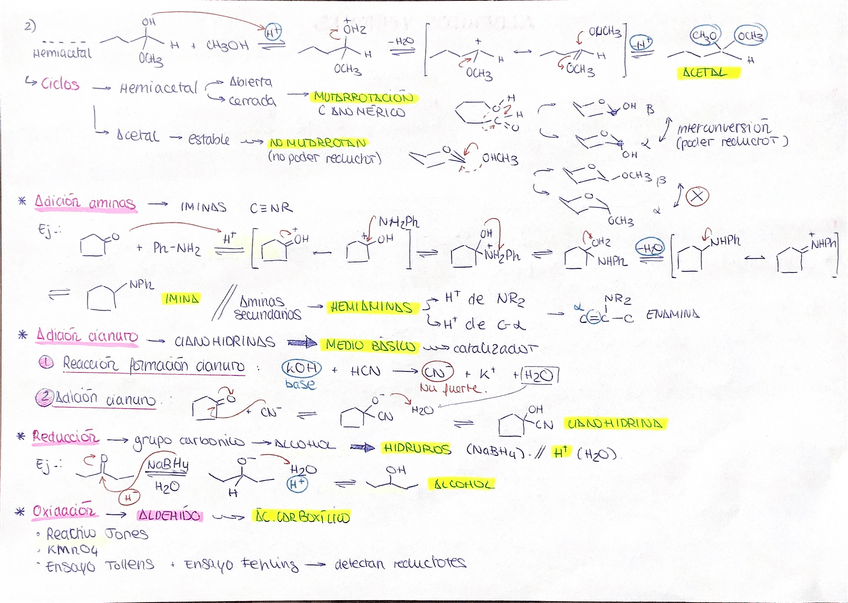 2) OH H⁺ +OH2 -H₂O + OHCH3 -H⁺ CH3O OCH3
Hemiacetal H + CH3OH ⇌ H ⇌ ↔ H ⇌ H
OCH3 OCH3 OCH3 OCH3 ACETAL
↳ Ciclos → Hemiacetal Abierta
cerrada → MUTARROTACIÓN
C ANOMÉRICO
O H OH β
C O α OH
Interconversión
(poder reductor)
Acetal → estable NO MUTARROTAN
(no poder reductor)
O OHCH3
O OCH3 β
O α OCH3
* Adición aminas → IMINAS C=NR
Ej.: O + Ph-NH2 H⁺ ⇌ [ +OH ↔ + OH ] NH2Ph ⇌ OH +NH2Ph ⇌ OH2 NHPh -H₂O ⇌ [ + NHPh ↔ +NHPh ]
⇌ NPh IMINA // Aminas secundarias → HEMIAMINAS H⁺ de NR2
H⁺ de C-α → α C=C-C NR2 ENAMINA
* Adición cianuro → CIANOHIDRINAS ⇒ MEDIO BÁSICO catalizador
① Reacción formación cianuro: KOH + HCN → CN⁻ + K⁺ + H2O
base Nu fuerte.
② Adición cianuro: O + CN⁻ ⇌ O⁻ CN H2O ⇌ OH CN CIANOHIDRINA
* Reducción → grupo carbonilo → ALCOHOL ⇒ HIDRUROS (NaBH4) // H⁺ (H2O).
Ej.: O NaBH4 O⁻ H2O OH
H⁻ H2O H H⁺ ⇌ ALCOHOL
* Oxidación → ALDEHIDO ÁC.CARBOXÍLICO
· Reactivo Jones
· KMnO4
· Ensayo Tollens + Ensayo Fehling → detectan reductores